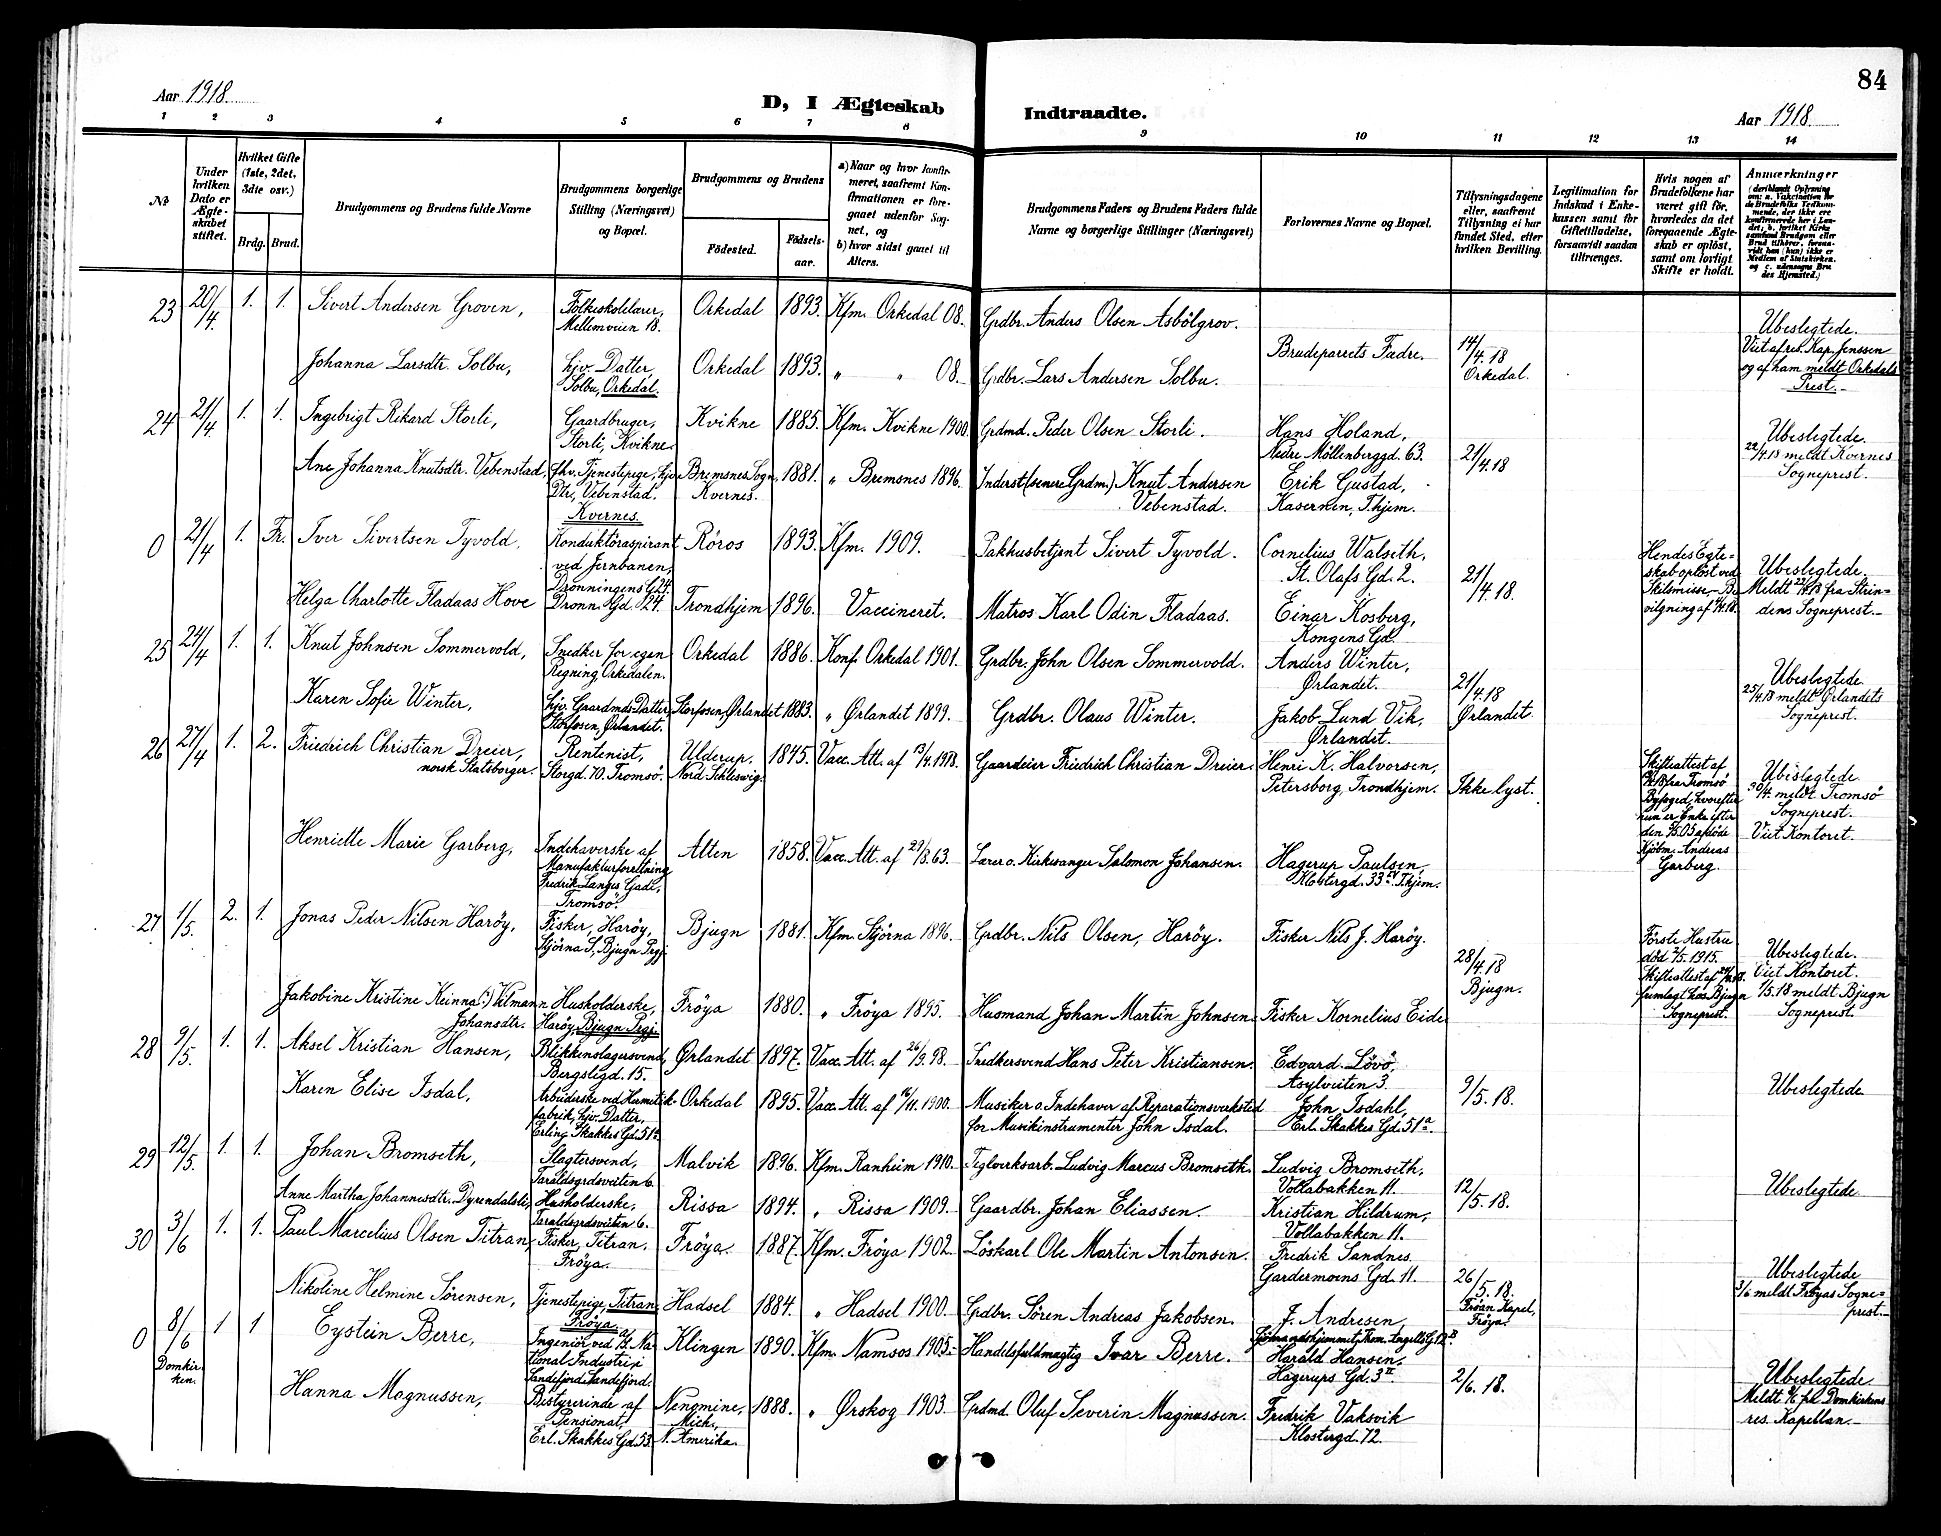 84
Aar 1918.
D, I Ægteskab
Indtraadte.
Aar 1918.
1 2 3 4 5 6 7 8 9 10 11 12 13 14
No
Under hvilken Dato er Ægteskabet stiftet.
Hvilket Gifte (1ste, 2det, 3die osv.)
Brdg. Brud.
Brudgommens og Brudens fulde Navne
Brudgommens borgerlige Stilling (Næringsvei) og Bopæl.
Brudgommens og Brudens
Fødested. Fødselsaar.
a) Naar og hvor konfirmeret, saafremt Konfirmationen er foregaaet udenfor Sognet, og
b) hvor sidst gaaet til Alters.
Brudgommens Faders og Brudens Faders fulde Navne og borgerlige Stillinger (Næringsvei)
Forlovernes Navne og Bopæl.
Tillysningsdagene eller, saafremt Tillysning ei har fundet Sted, efter hvilken Bevilling.
Legitimation for Indskud i Enkekassen samt for Giftetilladelse, forsaavidt saadan tiltrænges.
Hvis nogen af Brudefolkene har været gift før, hvorledes da det foregaaende Ægteskab er opløst, samt om lovligt Skifte er holdt.
Anmærkninger
23 20/4 1. 1. Sivert Andersen Groven, Folkeskolelærer, Mellemveien 18. Orkedal 1893. Kfm. Orkedal 08. Grdbr. Anders Olsen Asbölgrov. Brudeparrets Fædre. 14/4.18 Orkedal. Ubeslegtede. Viet af res. Kap. Jenssen og af ham meldt Orkedals Prest.
Johanna Larsdtr. Solbu, hjv. Datter, Solbu, Orkedal. Orkedal 1893. " " 08. Grdbr. Lars Andersen Solbu.
24 21/4 1. 1. Ingebrigt Rikard Storli, Gaardbruger, Storli, Kvikne. Kvikne 1885. Kfm. Kvikne 1900. Grdmd. Peder Olsen Storli. Hans Holand, Nedre Möllenberggd. 63. 21/4.18 Ubeslegtede. 22/4.18 meldt Kvernes Sogneprest.
Ane Johanna Knutsdtr. Vebenstad, fhv. Tjenestepige, hjv. Dtr., Vebenstad, Kvernes. Bremsnes Sogn, Kvernes. 1881. " Bremsnes 1896. Inderst (senere Grdm.) Knut Andersen Vebenstad. Erik Gustad, Kasernen, Thjem.
0 21/4 1. Fr. Iver Sivertsen Tyvold. Konduktöraspirant ved Jernbanen, Dronningens G. 24. Röros 1893. Kfm. 1909. Pakhusbetjent Sivert Tyvold. Cornelius Walseth, St. Olafs Gd. 2. 21/4.18. Hendes Egteskab oplöst ved Skilsmisse-Bevilgning af Ubeslegtede. Meldt 22/4.18 fra Strindens Sogneprest.
Helga Charlotte Fladaas Hove Dronn. Gd. 24. Trondhjem 1896. Vaccineret. Matros Karl Odin Fladaas. Einar Kosberg, Kongens Gd.
25 24/4 1. 1. Knut Johnsen Sommervold, Snedker for egen Regning, Orkedalen. Orkedal 1886. Konf. Orkedal 1901. Grdbr. John Olsen Sommervold. Anders Winter, Ørlandet. 21/4.18 Ørlandet Ubeslegtede. 25/4.18 meldt Ørlandets Sogneprest.
Karen Sofie Winter, hjv. Gaardmds Datter Storfosen, Ørlandet. Storfosen, Ørlandet 1883. " Ørlandet 1899. Grdbr. Olaus Winter. Jakob Lund Vik, Ørlandet.
26 27/4 1. 2. Friedrich Christian Dreier, norsk Statsborger. Rentenist, Storgd. 70. Tromsö. Ulderup. Nord Schleswig. 1845. Vacc. Att. af 13/4.1918. Gaardeier Friedrich Christian Dreier. Henri K. Halvorsen, Petersborg, Trondhjem. Ikke lyst. Skifteattest af fra Tromsö Byfoged, hvorefter hun er Enke efter den afdöde Kjöbm. Andreas Garberg. Ubeslegtede. 30/4. meldt Tromsö Sogneprest. Viet Kontoret.
Henriette Marie Garberg, Indehaverske af Manufakturforretning Fredrik Langes Gade, Tromsö. Alten 1858. Vacc. Att. af 29/8.63. Lærer o. Kirkesanger Salomon Johansen. Hagerup Paulsen, Klostergd. 33 IV Thjem.
27 1/5. 2. 1. Jonas Peder Nilsen Haröy, Fisker, Haröy, Stjörna S., Bjugn Prgj. Bjugn 1881. Kfm. Stjörna 1896. Grdbr. Nils Olsen, Haröy. Fisker Nils J. Haröy. 28/4.18 Bjugn. Förste Hustru död 2/5.1915. Skifteattest af fremlagt hos Bjugn Sogneprest. Ubeslegtede. Viet Kontoret. 1/5.18 meldt Bjugn Sogneprest.
Jakobine Kristine Johansdtr. Husholderske, Haröy, Bjugn Prgj. Fröya 1880. " Fröya 1895. Husmand Johan Martin Johnsen. Fisker Kornelius Eide
28 9/5. 1. 1. Aksel Kristian Hansen, Blikkenslagersvend, Bergsligd. 15. Ørlandet 1897. Vacc. Att. af 26/9.98. Snedkersvend Hans Peter Kristiansen. Edvard Lövö, Asylveiten 3. 9/5.18. Ubeslegtede.
Karen Elise Isdal, Arbeiderske ved Hermetikfabrik, hjv. Datter, Erling Skakkes Gd. 51a. Orkedal 1895. Vacc. Att. af 16/11.1900. Musiker o. Indehaver af Reparationsverksted for Musikinstrumenter John Isdal. John Isdahl, Erl. Skakkes Gd. 51a.
29 12/5. 1. 1. Johan Bromseth, Slagtersvend, Taraldsgrdsveiten 6. Malvik 1896. Kfm. Ranheim 1910. Teglverksarb. Ludvig Marcus Bromseth. Ludvig Bromseth, Vollabakken 11. 12/5.18. Ubeslegtede
Anne Martha Johannesdtr. Dyrendalsli, Husholderske, Taraldsgrdsveiten 6. Rissa 1894. " Rissa 1909. Gaardbr. Johan Eliassen. Kristian Hildrum, Vollabakken 11.
30 3/6 1. 1. Paul Marcelius Olsen Titran, Fisker, Titran, Fröya. Fröya. 1887. Kfm. Fröya 1902. Löskarl Ole Martin Antonsen. Fredrik Sandnes Gardermoens Gd. 11. 26/5.18. Fröan Kapel, Fröya. Ubeslegtede 3/6 meldt Fröyas Sogneprest.
Nikoline Helmine Sörensen, Tjenestepige, Titran, Fröya. Hadsel 1884. " Hadsel 1900. Grdbr. Sören Andreas Jakobsen. J. Andresen,
0 8/6 Domkirken. 1 1 Eystein Berre, Ingeniör ved National Industri i Sandefjord, Sandefjord. Klingen 1890. Kfm. Namsos 1905. Handelsfuldmægtig Ivar Berre. Harald Hansen, Hagerups Gd. 3 II. 2/6.18. Ubeslegtede Meldt fra Domkirkens res. Kapellan.
Hanna Magnussen, Bestyrerinde af Pensionat, Erl. Skakkes Gd. 53. Menomine, Mich., N. Amerika. 1888. " Ørskog 1903. Grdmd. Oluf Severin Magnussen. Fredrik Vaksvik Klostergd. 72.